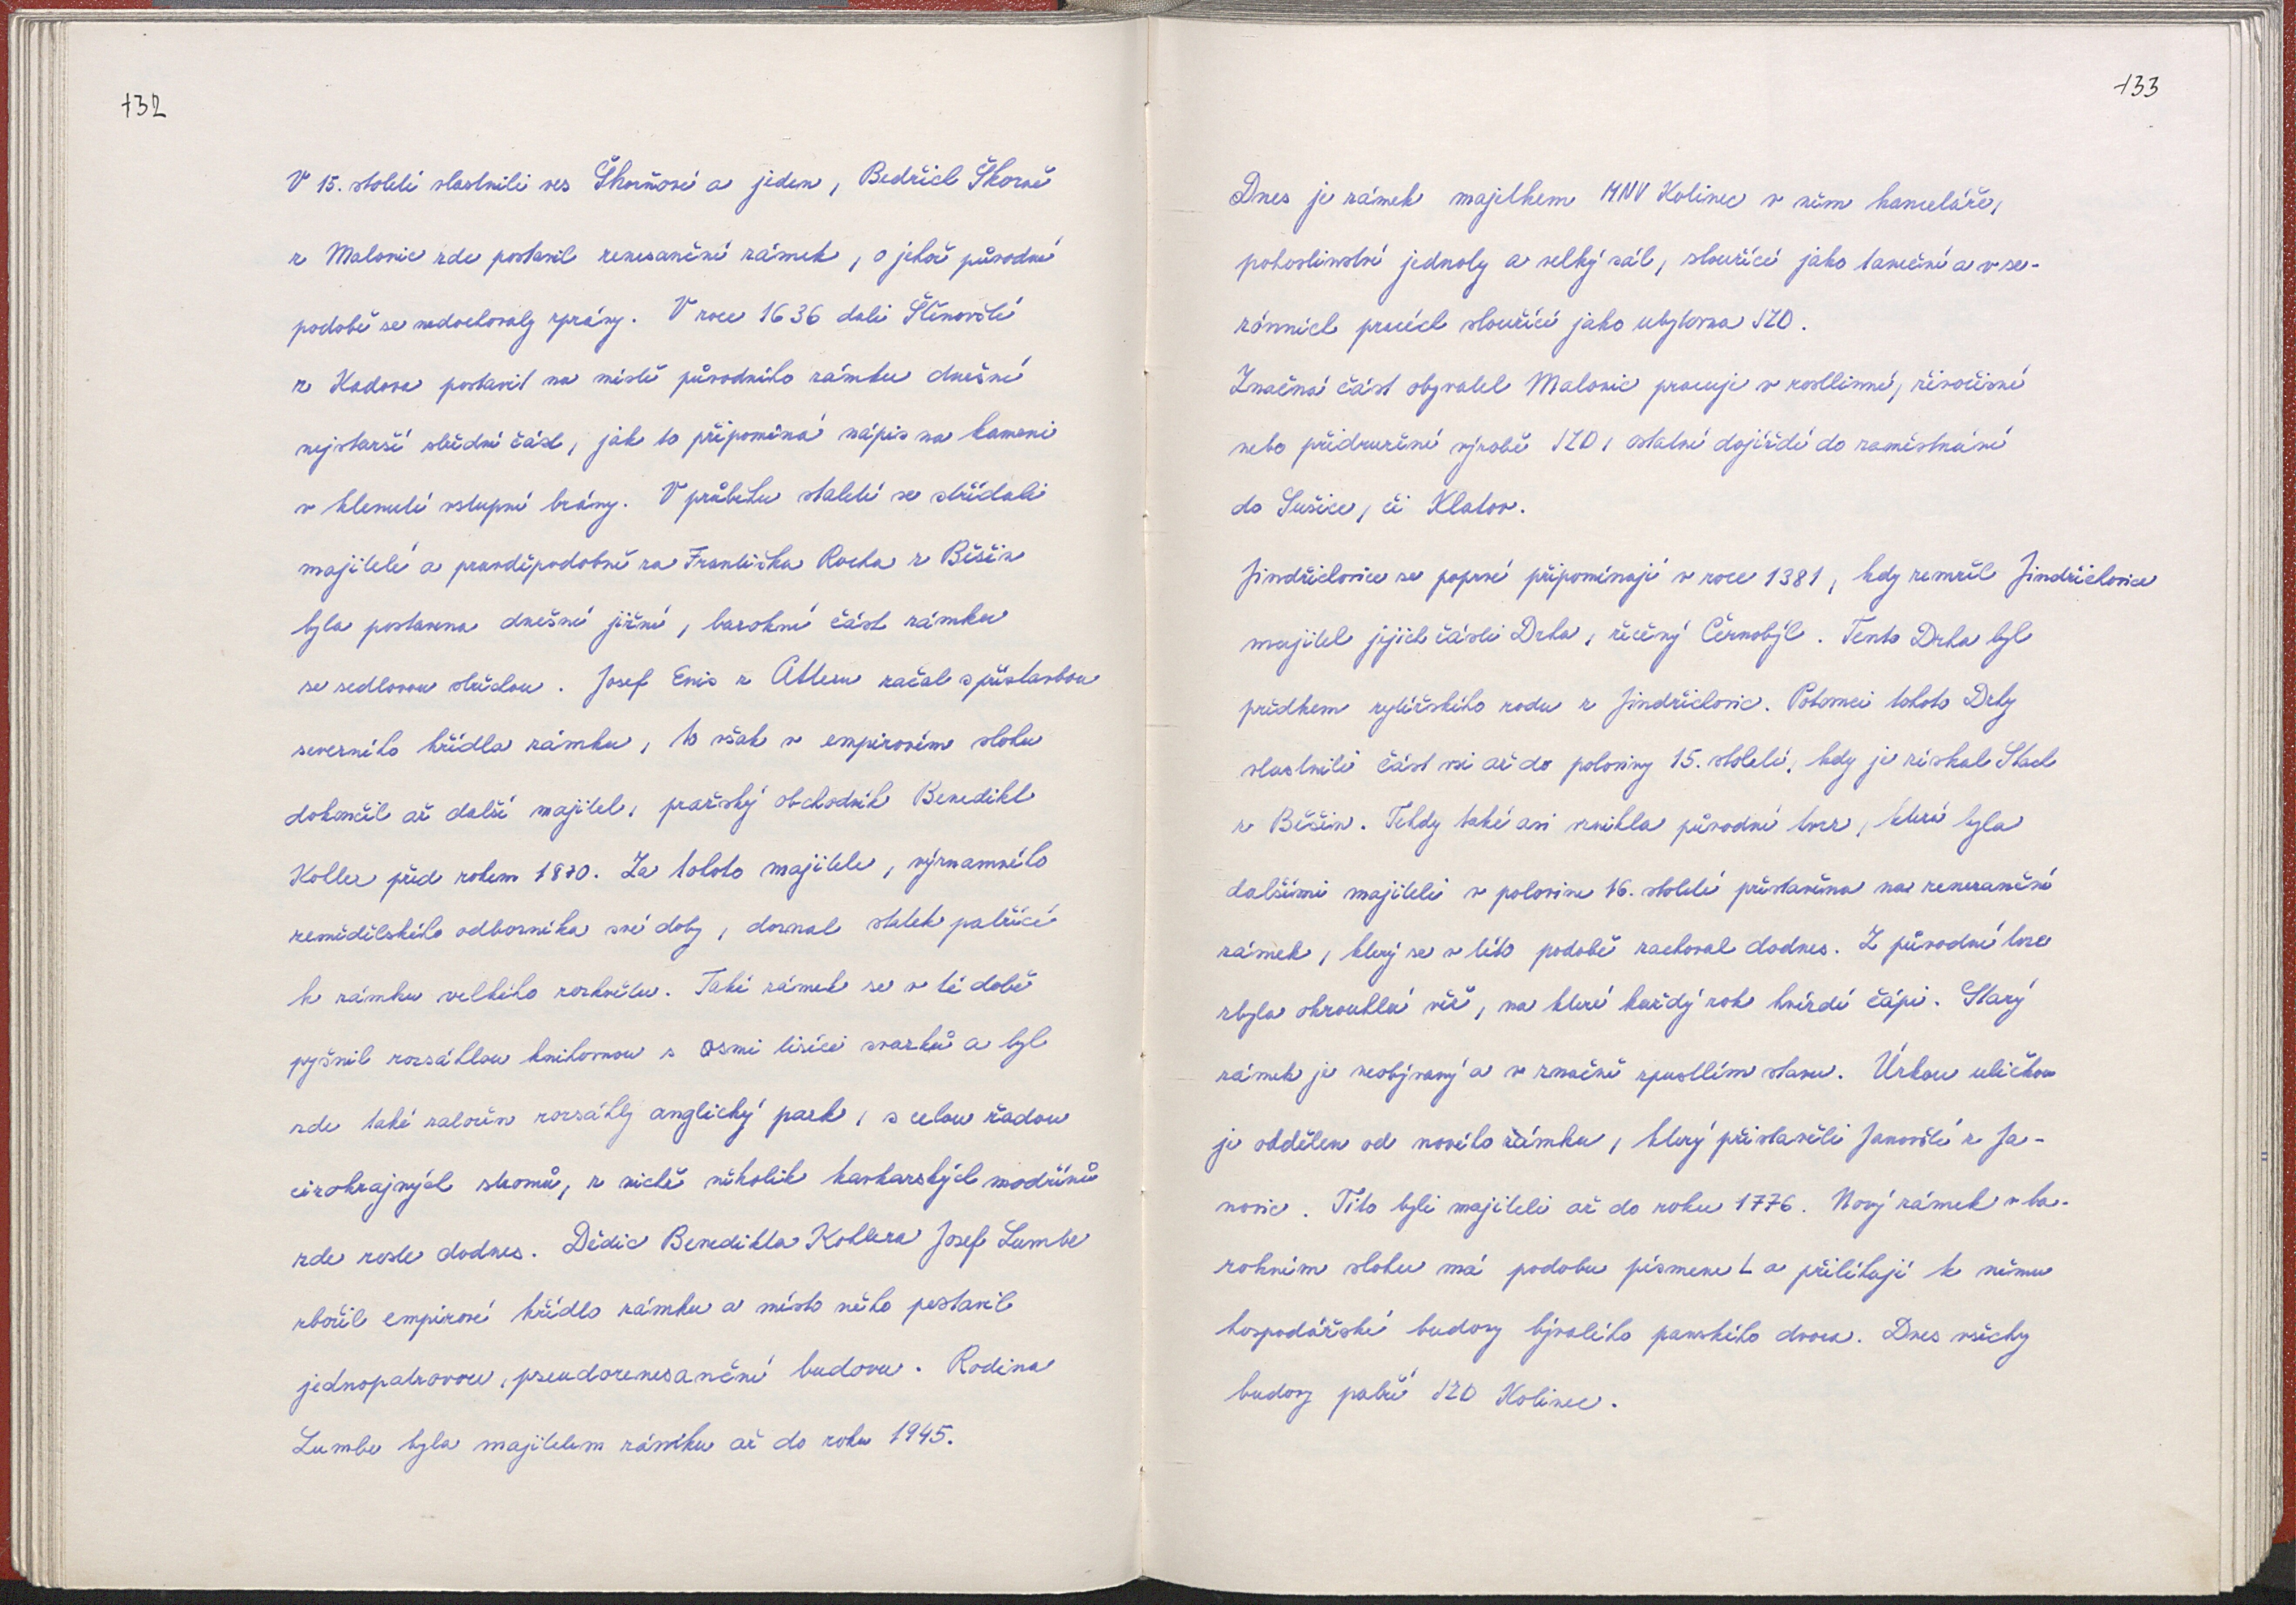 132
V 15. století vlastnili ves Škorňové a jeden, Bedřich Škorně
z Malonic zde postavil renesanční zámek, o jehož původní
podobě se nedochovaly zprávy. V roce 1636 dali Štěnovští
z Kadova postavit na místě původního zámku dnešní
nejstarší střední část, jak to připomíná nápis na kameni
v klenutí vstupní brány. V průběhu staletí se střídali
majitelé a pravděpodobně za Františka Rocha z Běšin
byla postavena dnešní jižní, barokní část zámku
se sedlovou střechou. Josef Enis z Atteru začal s přístavbou
severního křídla zámku, to však v empirovém slohu
dokončil až další majitel, pražský obchodník Benedikt
Koller před rokem 1870. Za tohoto majitele, významného
zemědělského odborníka své doby, doznal statek patřící
k zámku velkého rozkvětu. Také zámek se v té době
pyšnil rozsáhlou knihovnou s osmi tisíci svazků a byl
zde také založen rozsáhlý anglický park, s celou řadou
cizokrajných stromů, z nichž několik kavkarských modřínů
zde roste dodnes. Dědic Benedikta Kollera Josef Lumbe
zbořil empirové křídlo zámku a místo něho postavil
jednopatrovou, pseudorenesanční budovu. Rodina
Lumbe byla majitelem zámku až do roku 1945.
133
Dnes je zámek majetkem MNV Kolinec v něm kanceláře,
pohostinství jednoty a velký sál, sloužící jako taneční a v se-
zónních pracích sloužící jako ubytovna JZD.
Značná část obyvatel Malonic pracuje v rostlinné, živočišné
nebo přidružené výrobě JZD, ostatní dojíždí do zaměstnání
do Sušice, či Klatov.
Jindřichovice se poprvé připomínají v roce 1381, kdy zemřel Jindřichovice
majitel jejich části Drha, řečený Černobýl. Tento Drha byl
předkem rytířského rodu z Jindřichovic. Potomci tohoto Drhy
vlastnili část vsi až do poloviny 15. století, kdy je získal Stach
z Běšin. Tehdy také asi vznikla původní tvrz, která byla
dalšími majiteli v polovině 16. století přestavěna na renezanční
zámek, který se v této podobě zachoval dodnes. Z původní tvrze
zbyla okrouhlá věž, na které každý rok hnízdí čápi. Starý
zámek je neobývaný a v značně zpustlém stavu. Úzkou uličkou
je oddělen od nového zámku, který přistavěli Janovští z Ja-
novic. Tito byli majiteli až do roku 1776. Nový zámek v ba-
rokním slohu má podobu písmene L a přiléhají k němu
hospodářské budovy bývalého panského dvora. Dnes všechy
budovy patří JZD Kolinec.